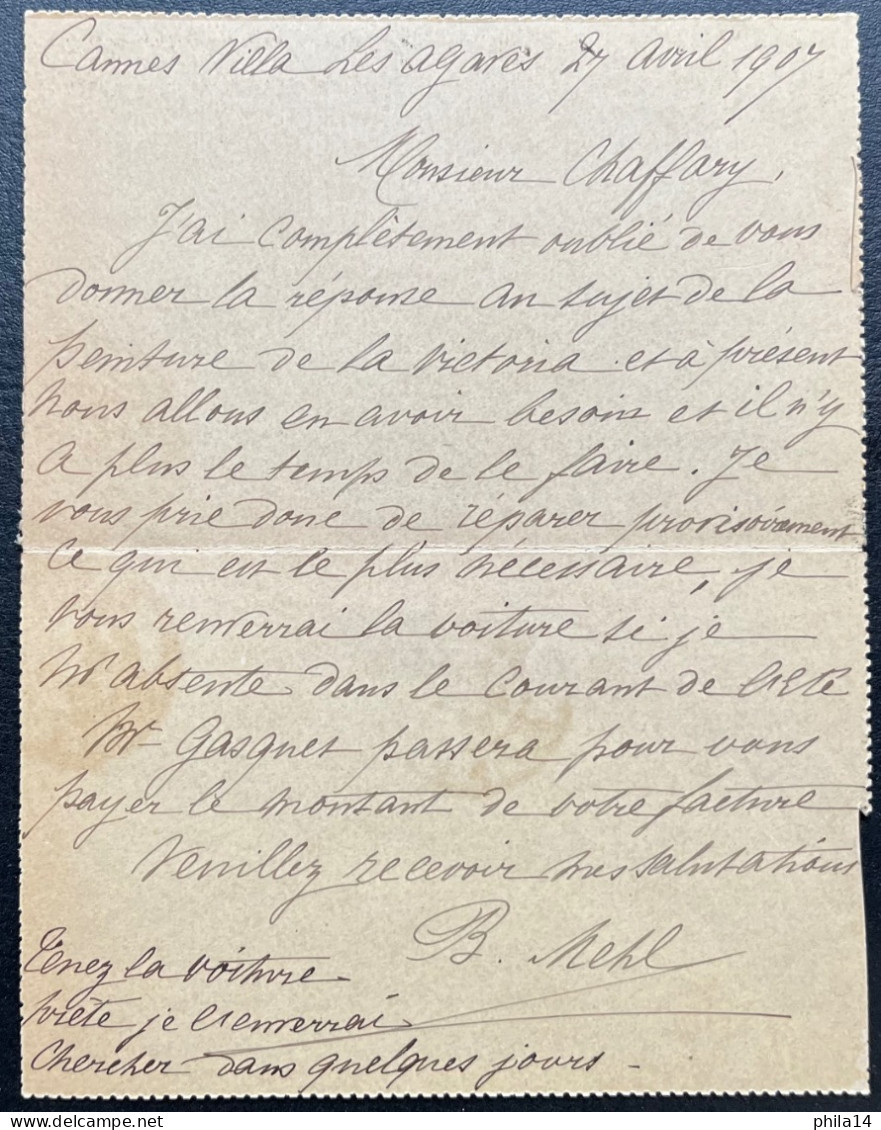 Cannes Villa Les agaves 27 avril 1907
Monsieur Chaffary,
J'ai complètement oublié de vous
donner la réponse au sujet de la
peinture de la victoria et à présent
nous allons en avoir besoin et il n'y
a plus le temps de le faire. Je
vous prie donc de réparer provisoirement
ce qui est le plus nécessaire, je
vous renverrai la voiture si je
m'absente dans le courant de l'été
Mr Gasquet passera pour vous
payer le montant de votre facture
Veuillez recevoir mes salutations
B. Mehl
Tenez la voiture
prête je l'enverrai
chercher dans quelques jours -
delcampe.net
phila14